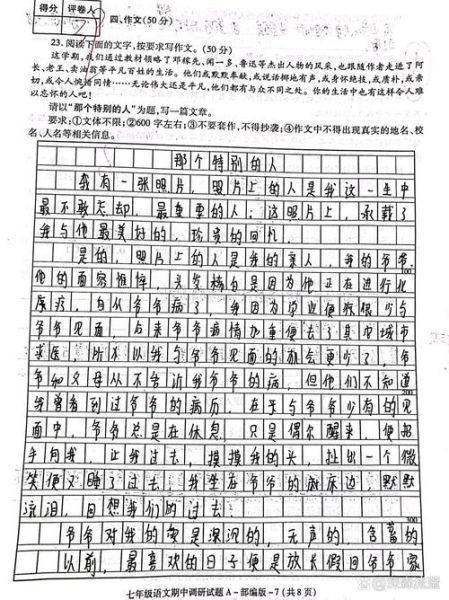 得分 评卷人
四、作文(50分)
23.阅读下面的文字,按要求写作文。(50分)
这学期,我们通过教材领略了邓稼先、闻一多、鲁迅等杰出人物的风采,也跟随作者走进了阿
长、老王、卖油翁等平凡百姓的生活。他们或默默奉献,或说话掷地有声,或身怀绝技,或质朴,或亲
切,或令人惋惜同情……无论伟大还是平凡,他们都有与众不同之处。你的生活中也有这样令人难
以忘怀的人吧!
请以“那个特别的人”为题,写一篇文章。
要求:①文体不限;②600字左右;③不要套作,不得抄袭;④作文中不得出现真实的地名、校
名、人名等相关信息。
那个特别的人
我有一张照片,照片上的人是我这一生中
最不敢忘却,最重要的人;这照片,承载了
我与他最美好的,珍贵的回忆。
是的,照片上的人是我的亲人,我的爷爷.
100
他的面容憔悴,头发稀白是因为他正在进行化
尿疗,自从爷爷病了,我因为毕业便很很少与
爷爷见面,后来爷爷病情加重便去了其它城市
求医,所以我与爷爷见面的机会更少了,爷
爷和父母从不告诉我爷爷的病,但他们不知道
200
我曾看到过爷爷的病历,在于与爷爷少有的见
面中,爷爷总是在休息,只是偶尔醒来,便招
手向我,让我过去,摸摸我的头,扯出一个微
笑便又睡了过去,我坐在爷爷的病床边默默
流泪,回想我们的过去.
300
爷爷对我的爱是深沉的,无声的,含蓄的
以前,最喜欢的日子便是放长假回爷爷家
七年级语文期中调研试题A-部编版-7(共8页)